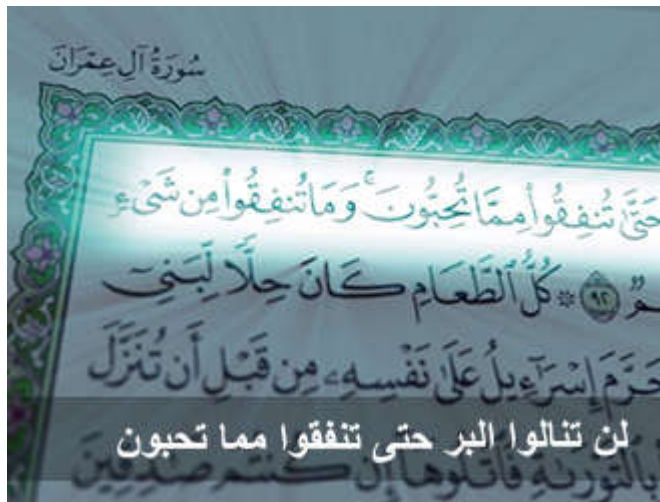 سُورَةُ آلِ عِمْرَانَ
حَتَّىٰ تُنفِقُوا۟ مِمَّا تُحِبُّونَ ۚ وَمَا تُنفِقُوا۟ مِن شَىْءٍ
۝٩٢ ۞ كُلُّ ٱلطَّعَامِ كَانَ حِلًّا لِّبَنِىٓ
حَرَّمَ إِسْرَٰٓءِيلُ عَلَىٰ نَفْسِهِۦ مِن قَبْلِ أَن تُنَزَّلَ
لن تنالوا البر حتى تنفقوا مما تحبون
بِٱلتَّوْرَىٰةِ فَٱتْلُوهَآ إِن كُنتُمْ صَٰدِقِينَ